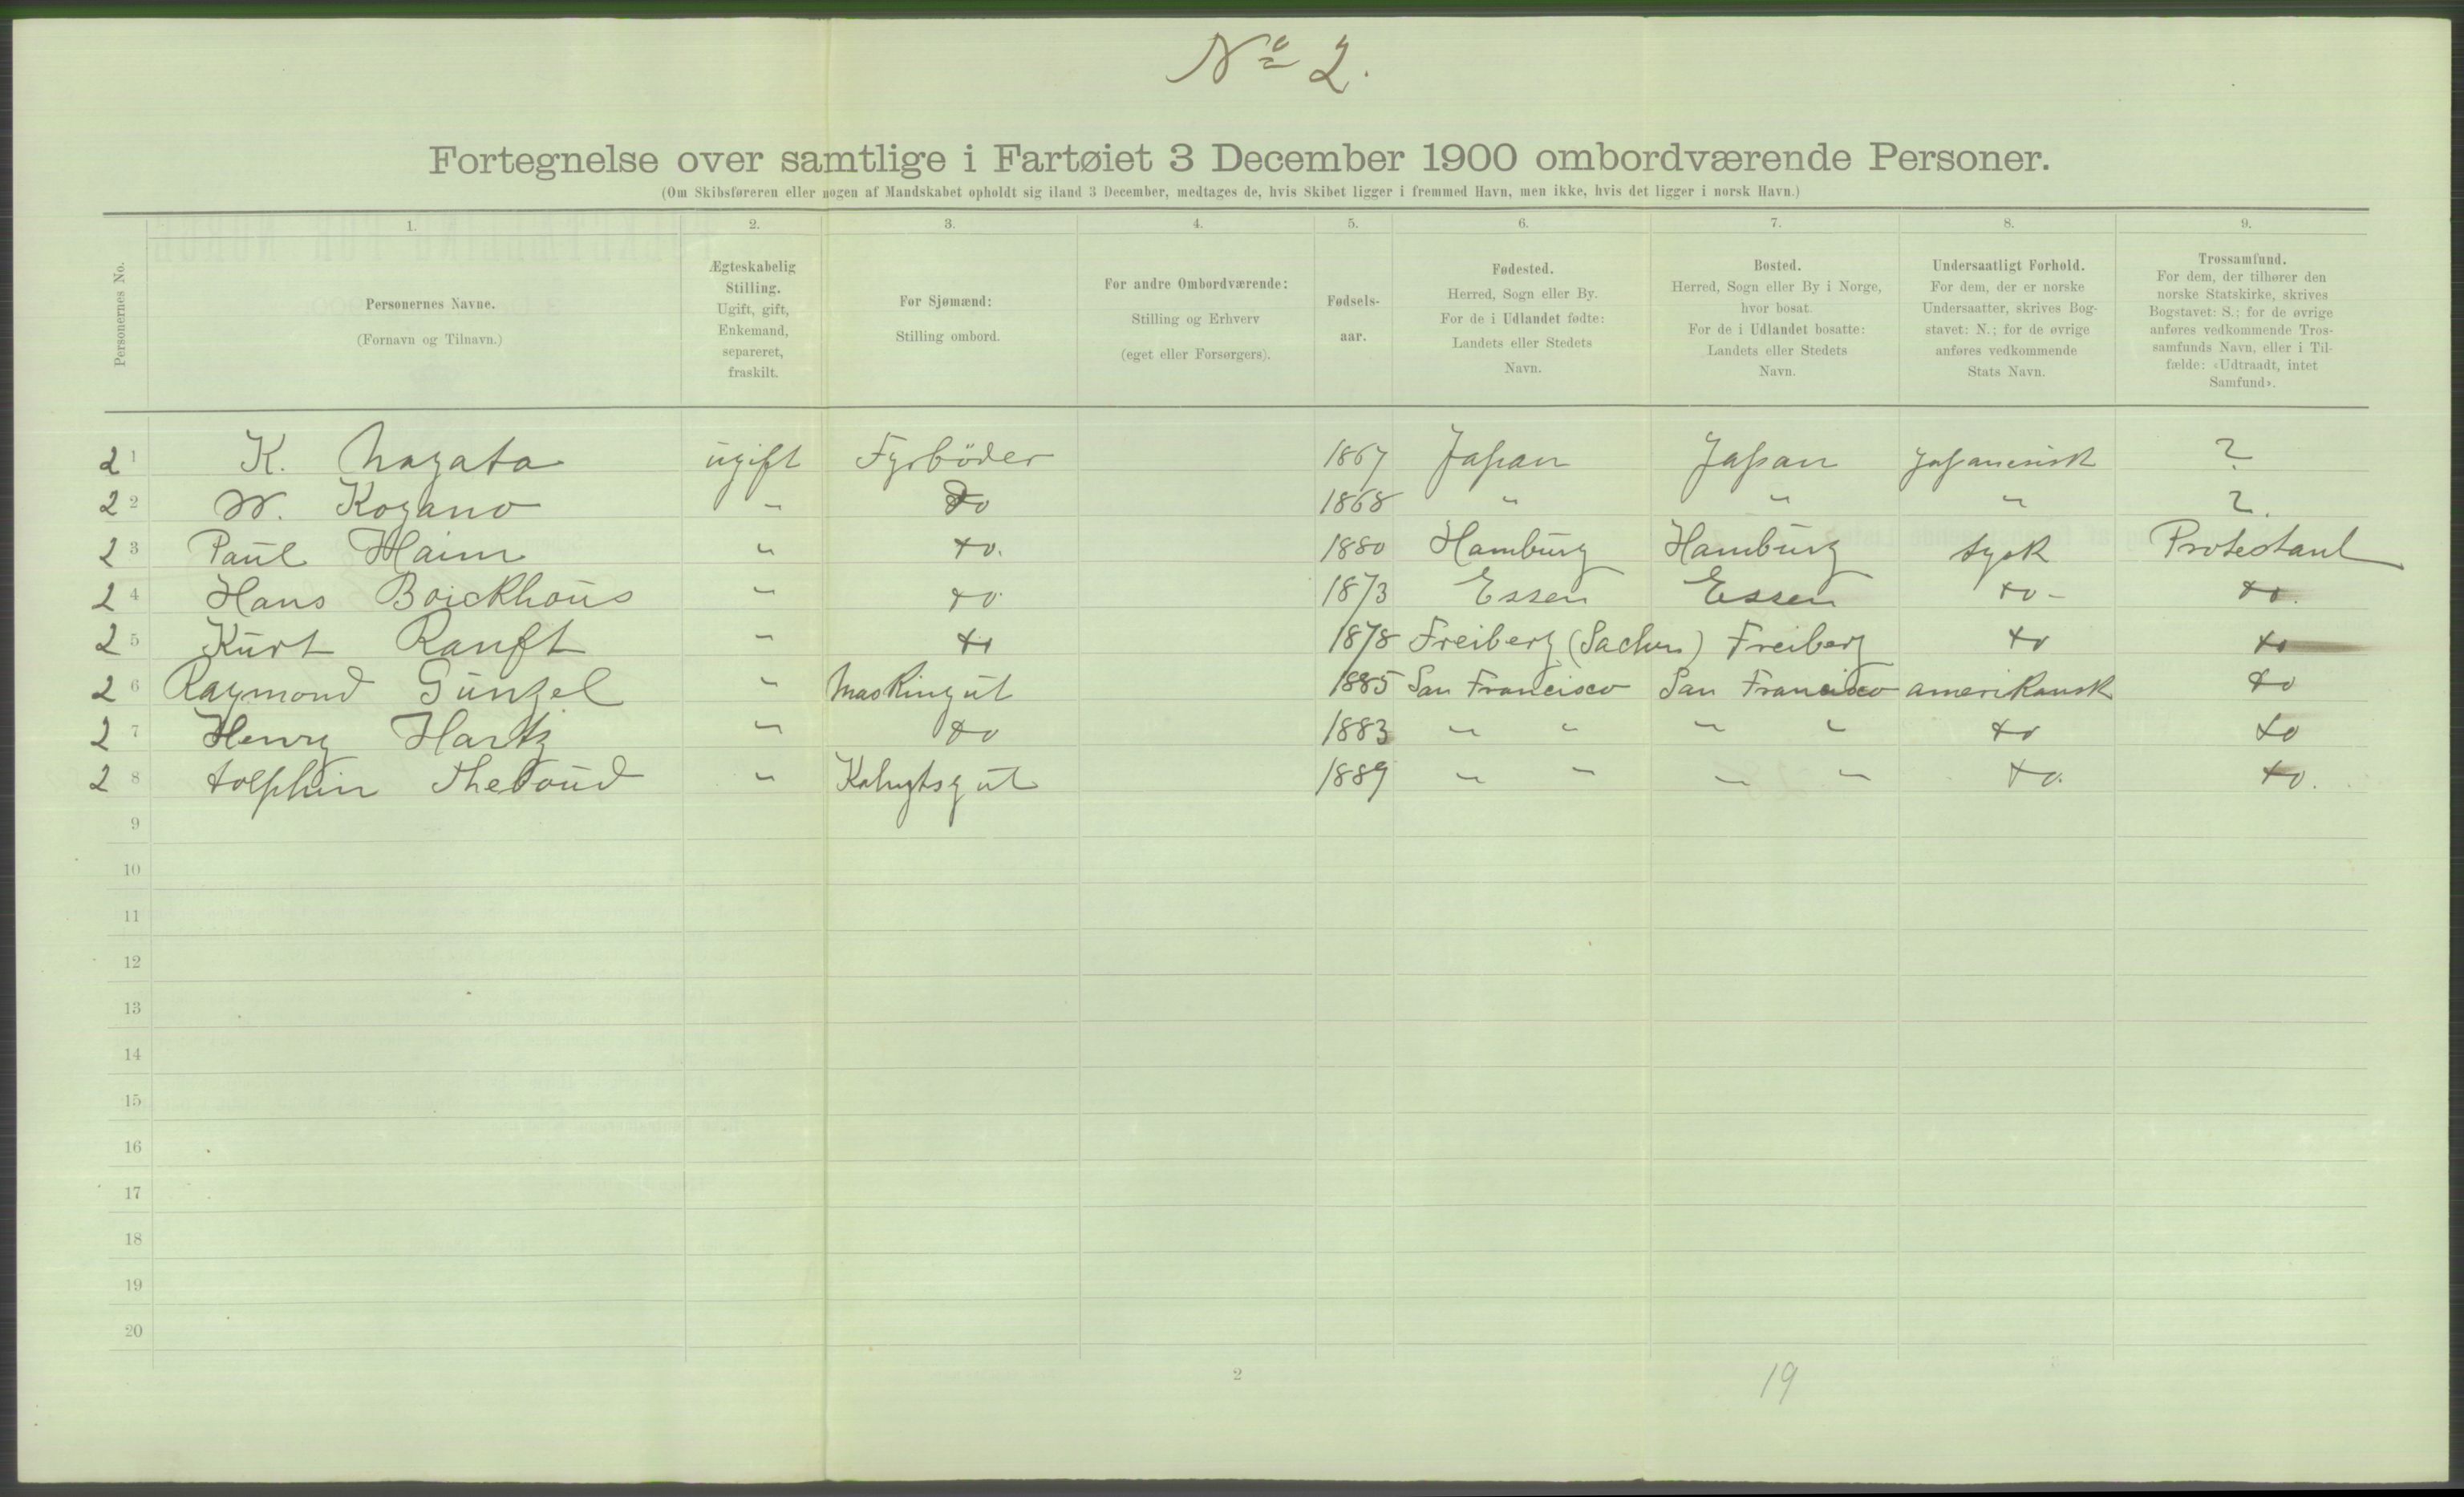 No 2.
Fortegnelse over samtlige i Fartøiet 3 December 1900 ombordværende Personer.
(Om Skibsføreren eller nogen af Mandskabet opholdt sig iland 3 December, medtages de, hvis Skibet ligger i fremmed Havn, men ikke, hvis det ligger i norsk Havn.)
Personernes No.
1.
Personernes Navne.
(Fornavn og Tilnavn.)
2.
Ægteskabelig
Stilling.
Ugift, gift,
Enkemand,
separeret,
fraskilt.
3.
For Sjømænd:
Stilling ombord.
4.
For andre Ombordværende:
Stilling og Erhverv
(eget eller Forsørgers).
5.
Fødsels-
aar.
6.
Fødested.
Herred, Sogn eller By.
For de i Udlandet fødte:
Landets eller Stedets
Navn.
7.
Bosted.
Herred, Sogn eller By i Norge,
hvor bosat.
For de i Udlandet bosatte:
Landets eller Stedets
Navn.
8.
Undersaatligt Forhold.
For dem, der er norske
Undersaatter, skrives Bog-
stavet: N.; for de øvrige
anføres vedkommende
Stats Navn.
9.
Trossamfund.
For dem, der tilhører den
norske Statskirke, skrives
Bogstavet: S.; for de øvrige
anføres vedkommende Tros-
samfunds Navn, eller i Til-
fælde: «Udtraadt, intet
Samfund».
2 1 K. Nagata ugift Fyrböder 1867 Japan Japan japanesisk ?
2 2 W. Kogano " do 1868 " " " ?
2 3 Paul Haim " do. 1880 Hamburg Hamburg tysk Protestant
2 4 Hans Boickhous " do 1873 Essen Essen do - do.
2 5 Kurt Ranft " do 1878 Freiberg (Sachsen) Freiberg do do
2 6 Raymond Günzel " Maskingut 1885 San Francisco San Francisco amerikansk do
2 7 Henry Hartz " do 1883 " " " " do do
2 8 dolphin Theboud " Kahytsgut 1889 " " " " do. do.
9
10
11
12
13
14
15
16
17
18
19
20
2
19